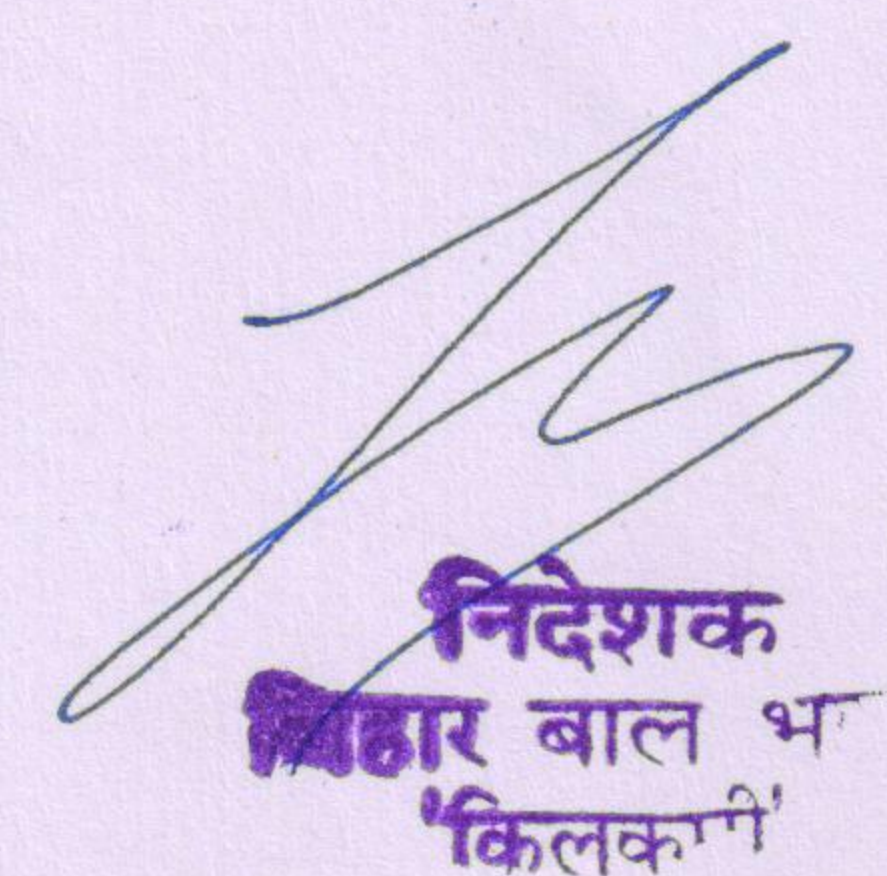 निदेशक
बिहार बाल
'किलकारी'